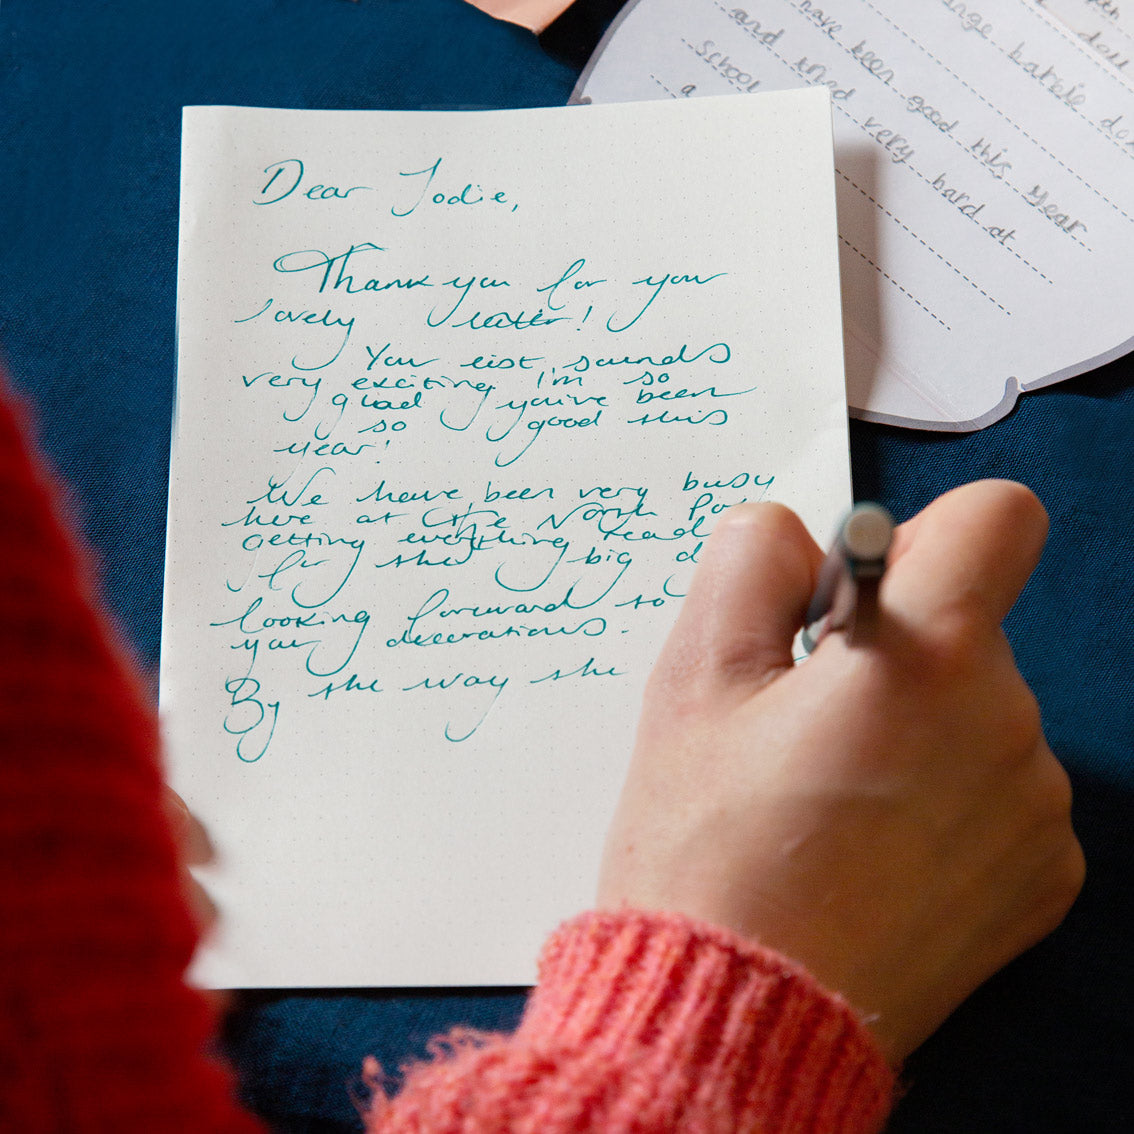 Dear Jodie,
Thank you for your
lovely letter!
Your list sounds
very exciting I'm so
glad you've been
so good this
year!
We have been very busy
here at the North
getting everything
for the big
looking forward to
your decorations.
By the way the
have been good this year
and tried very hard at
school
a